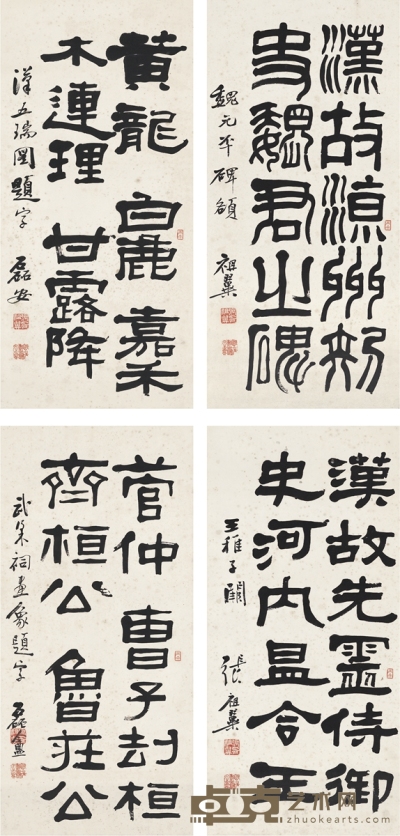 漢故涼州刺
史魏君之碑
魏元丕碑額 祖翼
黃龍 白鹿 嘉禾
木連理 甘露降
漢五瑞圖題字 磊安
漢故先靈侍御
史河內縣令王
王稚子闕 張祖翼
管仲 曹子劫桓
齊桓公 魯莊公
武梁祠畫象題字 磊盦
卓克艺术网
zhuokearts.com